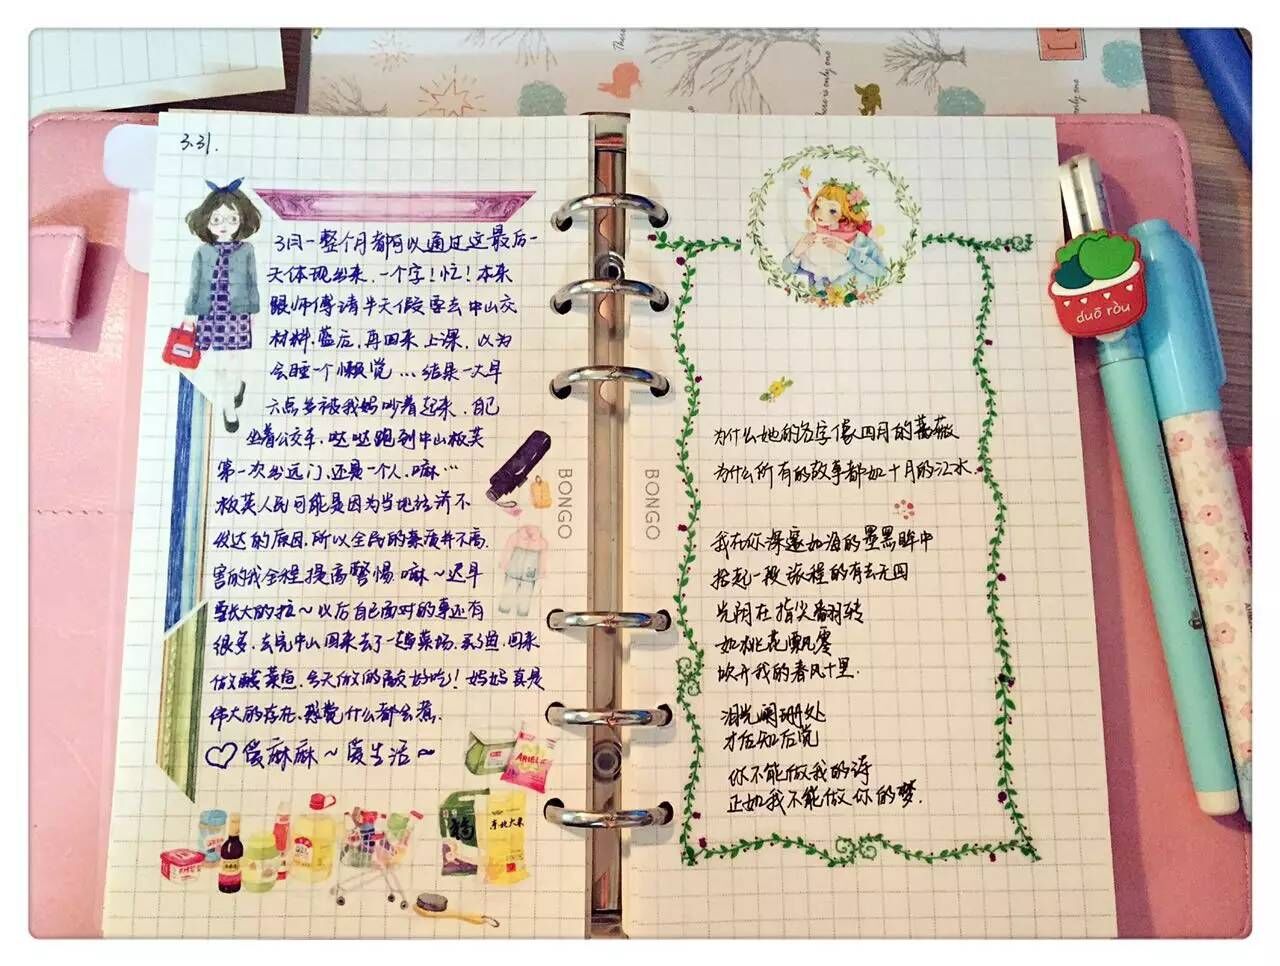 3.31.
3月一整个月都可以通过这最后一
天体现出来,一个字!忙!本来
跟师傅请半天假要去中山交
材料,盖应,再回来上课,以为
会睡一个懒觉…结果一大早
六点多被我妈吵着起来,自己
坐着公交车,哒哒跑到中山板芙
第一次出远门,还是一个人,嘛…
板芙人民可能是因为当地经济不
发达的原因,所以全民的素质并不高,
害的我全程提高警惕,嘛~迟早
要长大的拉~以后自己面对的事还有
很多,去完中山回来去了一趟菜场,买了鱼,回来
做酸菜鱼,今天做的最好吃!妈妈真是
伟大的存在,感觉什么都会煮.
♡爱麻麻~爱生活~
ARIELE
东北大米
BONGO
BONGO
为什么她的名字像四月的蔷薇
为什么所有的故事都如十月的江水
我在你深邃如海的墨黑眸中
拾起一段旅程的有去无回
光阴在指尖翻转
如桃花飘零
吹开我的春风十里.
泪光阑珊处
才后知后觉
你不能做我的诗
正如我不能做你的梦.
duō ròu
There is only one